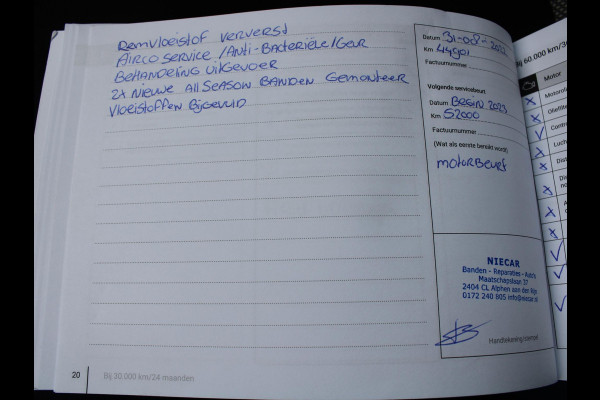 REMVLOEISTOF VERVERST
AIRCO SERVICE / ANTI-BACTERIËLE / GEUR
BEHANDELING UITGEVOER
2x NIEUWE ALL SEASON BANDEN GEMONTEER
VLOEISTOFFEN BIJGEVULD
Datum 31-08-
Km 44901
Factuurnummer
Volgende servicebeurt
Datum BEGIN 2023
Km 52000
Factuurnummer
(Wat als eerste bereikt wordt)
MOTORBEURT
NIECAR
Banden - Reparaties - Auto's
Maatschapslaan 37
2404 CL Alphen aan den Rijn
0172 240 805 info@niecar.nl
Handtekening/stempel
20
Bij 30.000 km/24 maanden
Bij 60.000 km/3
Motor
Motoroli
Oliefilte
Contr
Luch
Dis
Dis